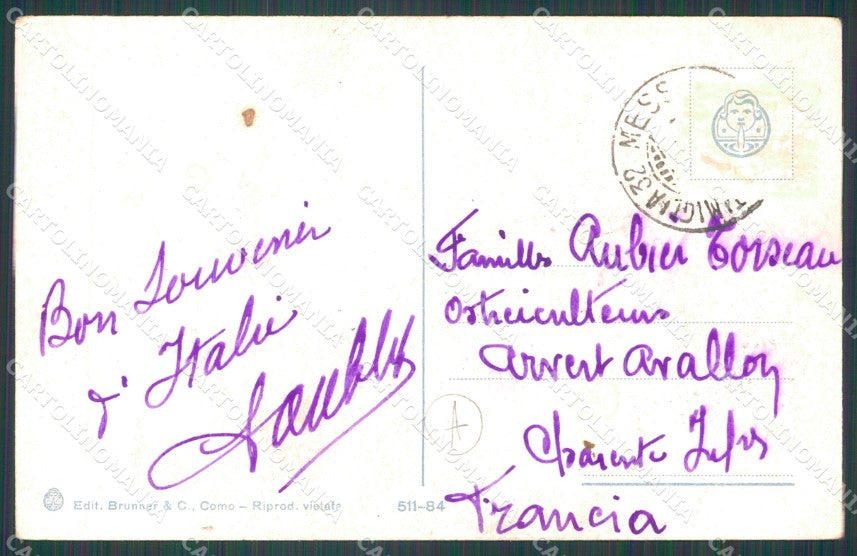 Bon Souvenir
d'Italie
MESS
TAMIGLIA 32
Famille Aubier Torseau
Ostreiculteurs
Arvert Avallon
Charente Infre
Francia
A
Edit. Brunner & C., Como – Riprod. vietata
511-84
CARTOLINOMANIA